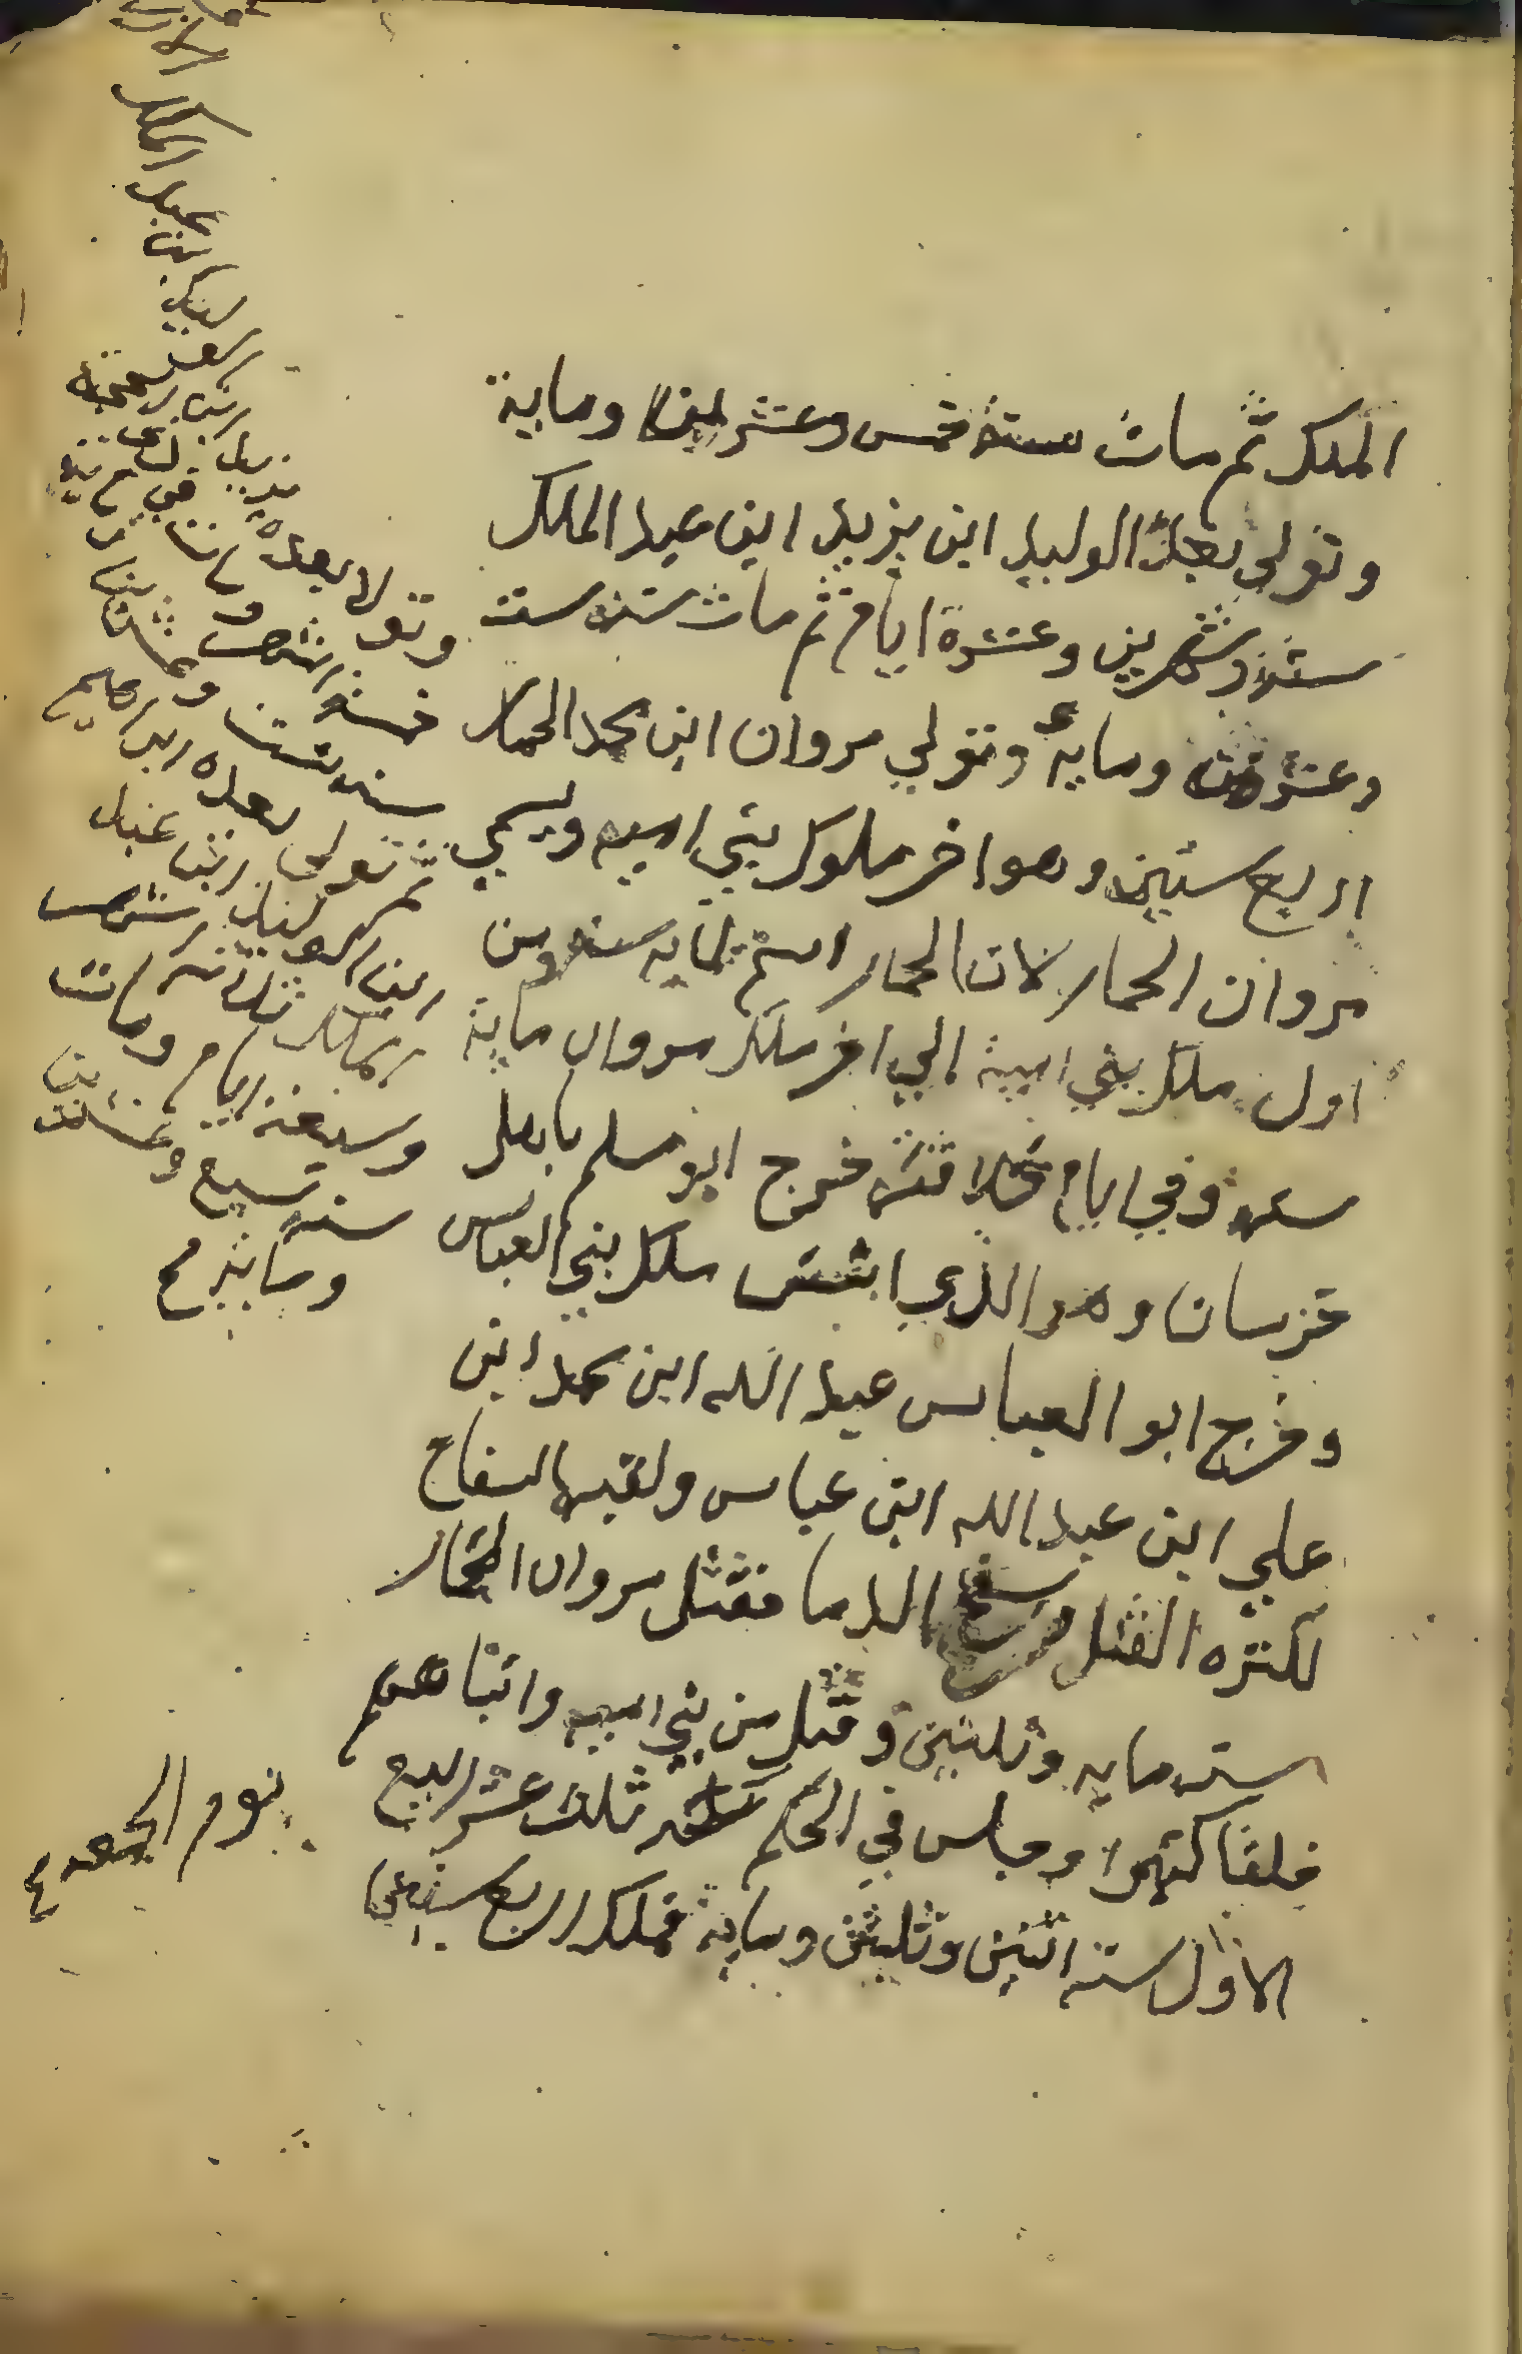 الملك ثم مات سنة خمس وعشرين وماية
وتولي بعده الوليد ابن يزيد ابن عبد الملك
سنة وشهرين وعشرة ايام ثم مات سنة ست
وعشرين وماية وتولي مروان ابن محمد الحمار
اربع سنين وهو اخر ملوك بني اميه ويسمي
مروان الحمار لان الحمار اسم لمايه سنة ومن
اول ملك بني امية الي اخر ملك مروان ماية
سنة وفي ايام خلافته خرج ابو مسلم باهل
خرسان وهو الذي اسس ملك بني العباس
وخرج ابو العباس عبد الله ابن محمد ابن
علي ابن عبد الله ابن عباس ولقب بالسفاح
لكثره القتل وسفح الدما فقتل مروان الحمار
سنه مايه وثلثين وقتل من بني اميه واتباعهم
خلقا كثيرا وجلس في الحكم ثلث عشر ربيع
الاول سنه اثنين وثلثين وماية فملك اربع سنين
عبد الملك
ابن
الوليد
وتولا بعده يزيد ابن
خمسة اشهر ومات في
سنة ست وعشرين
ثم تولي بعده ابراهيم
ابن الوليد ابن عبد
الملك ثلاثة اشهر
وسبعة ايام ومات
سنة سبع وعشرين
وماية
يوم الجمعة